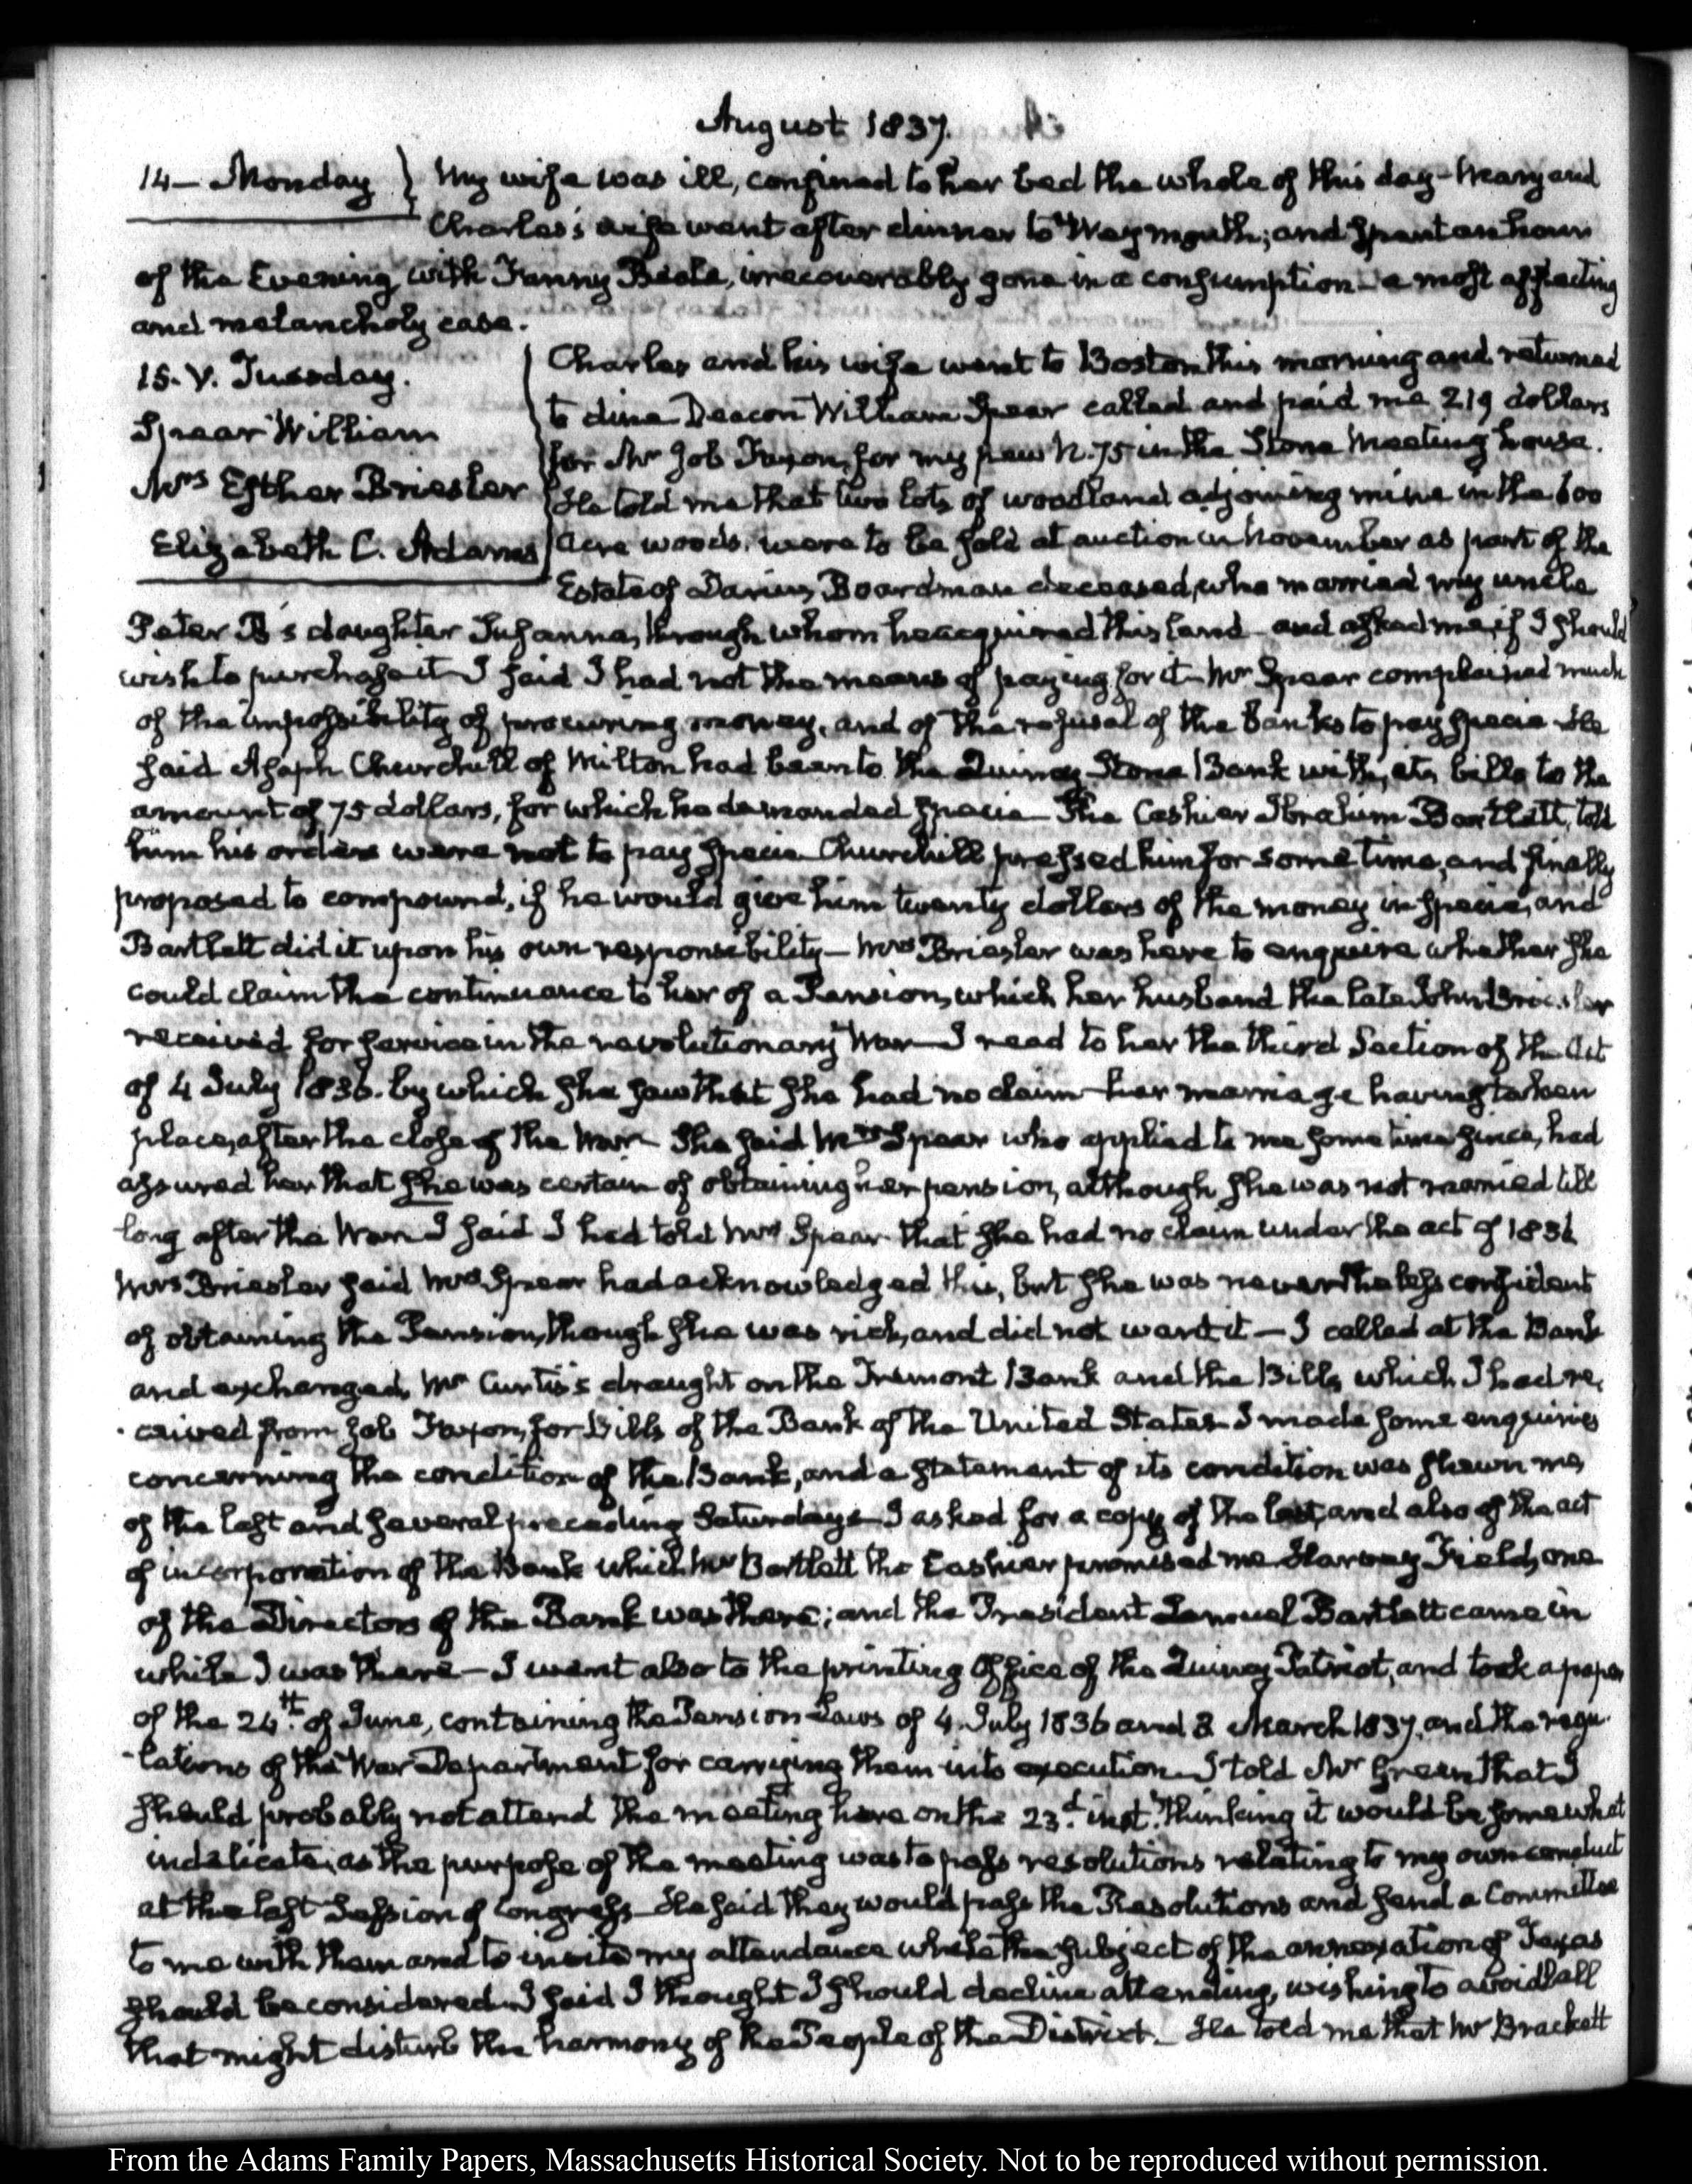 August 1837.
14 — Monday } My wife was ill, confined to her bed the whole of this day — Mary and
Charles's wife went after dinner to Weymouth; and spent an hour
of the Evening with Fanny Beale, irrecoverably gone in a consumption — a most affecting
and melancholy case.
15. V. Tuesday.
Spear William
Mrs Esther Briesler
Elizabeth C. Adams
Charles and his wife went to Boston this morning and returned
to dine Deacon William Spear called and paid me 219 dollars
for Mr Job Faxon, for my pew N. 75 in the Stone Meeting house.
He told me that two lots of woodland adjoining mine in the 600
Acre woods, were to be sold at auction in November as part of the
Estate of Darius Boardman deceased, who married my uncle
Peter B's daughter Susanna, through whom he acquired this land — and asked me, if I should
wish to purchase it — I said I had not the means of paying for it — Mr Spear complained much
of the impossibility of procuring money, and of the refusal of the banks to pay specie — He
said Asaph Churchill of Milton had been to the Quincy Stone Bank with its bills to the
amount of 75 dollars, for which he demanded specie — The Cashier Ibrahim Bartlett, told
him his orders were not to pay specie Churchill pressed him for some time, and finally
proposed to compound, if he would give him twenty dollars of the money in specie, and
Bartlett did it upon his own responsibility — Mrs Briesler was here to enquire whether she
could claim the continuance to her of a Pension, which her husband the late John Briesler
received for service in the revolutionary War — I read to her the third Section of the Act
of 4 July 1836. by which she saw that she had no claim — her marriage having taken
place, after the close of the War — She said Mrs Spear who applied to me some time since, had
assured her that she was certain of obtaining her pension, although she was not married till
long after the War — I said I had told Mrs Spear that she had no claim under the act of 1836
Mrs Briesler said Mrs Spear had acknowledged this, but she was nevertheless confident
of obtaining the Pension, though she was rich, and did not want it — I called at the Bank
and exchanged, Mr Curtis's draught on the Tremont Bank and the Bills which I had re-
-ceived from Job Faxon, for Bills of the Bank of the United States — I made some enquiries
concerning the condition of the Bank, and a statement of its condition was shewn me,
of the last and several preceding Saturdays — I asked for a copy of the last, and also of the act
of incorporation of the Bank which Mr Bartlett the Cashier promised me — Harvey Field, one
of the Directors of the Bank was there; and the President Lemuel Bartlett came in
while I was there — I went also to the printing Office of the Quincy Patriot, and took a paper
of the 24th of June, containing the Pension Laws of 4 July 1836 and 3 March 1837, and the regu-
-lations of the War Department for carrying them into execution — I told Mr Green that I
should probably not attend the meeting here on the 23d inst. thinking it would be somewhat
indelicate; as the purpose of the meeting was to pass resolutions relating to my own conduct
at the last Session of Congress — He said they would pass the Resolutions and send a Committee
to me with them and to invite my attendance while the subject of the annexation of Texas
should be considered — I said I thought I should decline attending, wishing to avoid all
that might disturb the harmony of the People of the District — He told me that Mr Brackett
From the Adams Family Papers, Massachusetts Historical Society. Not to be reproduced without permission.